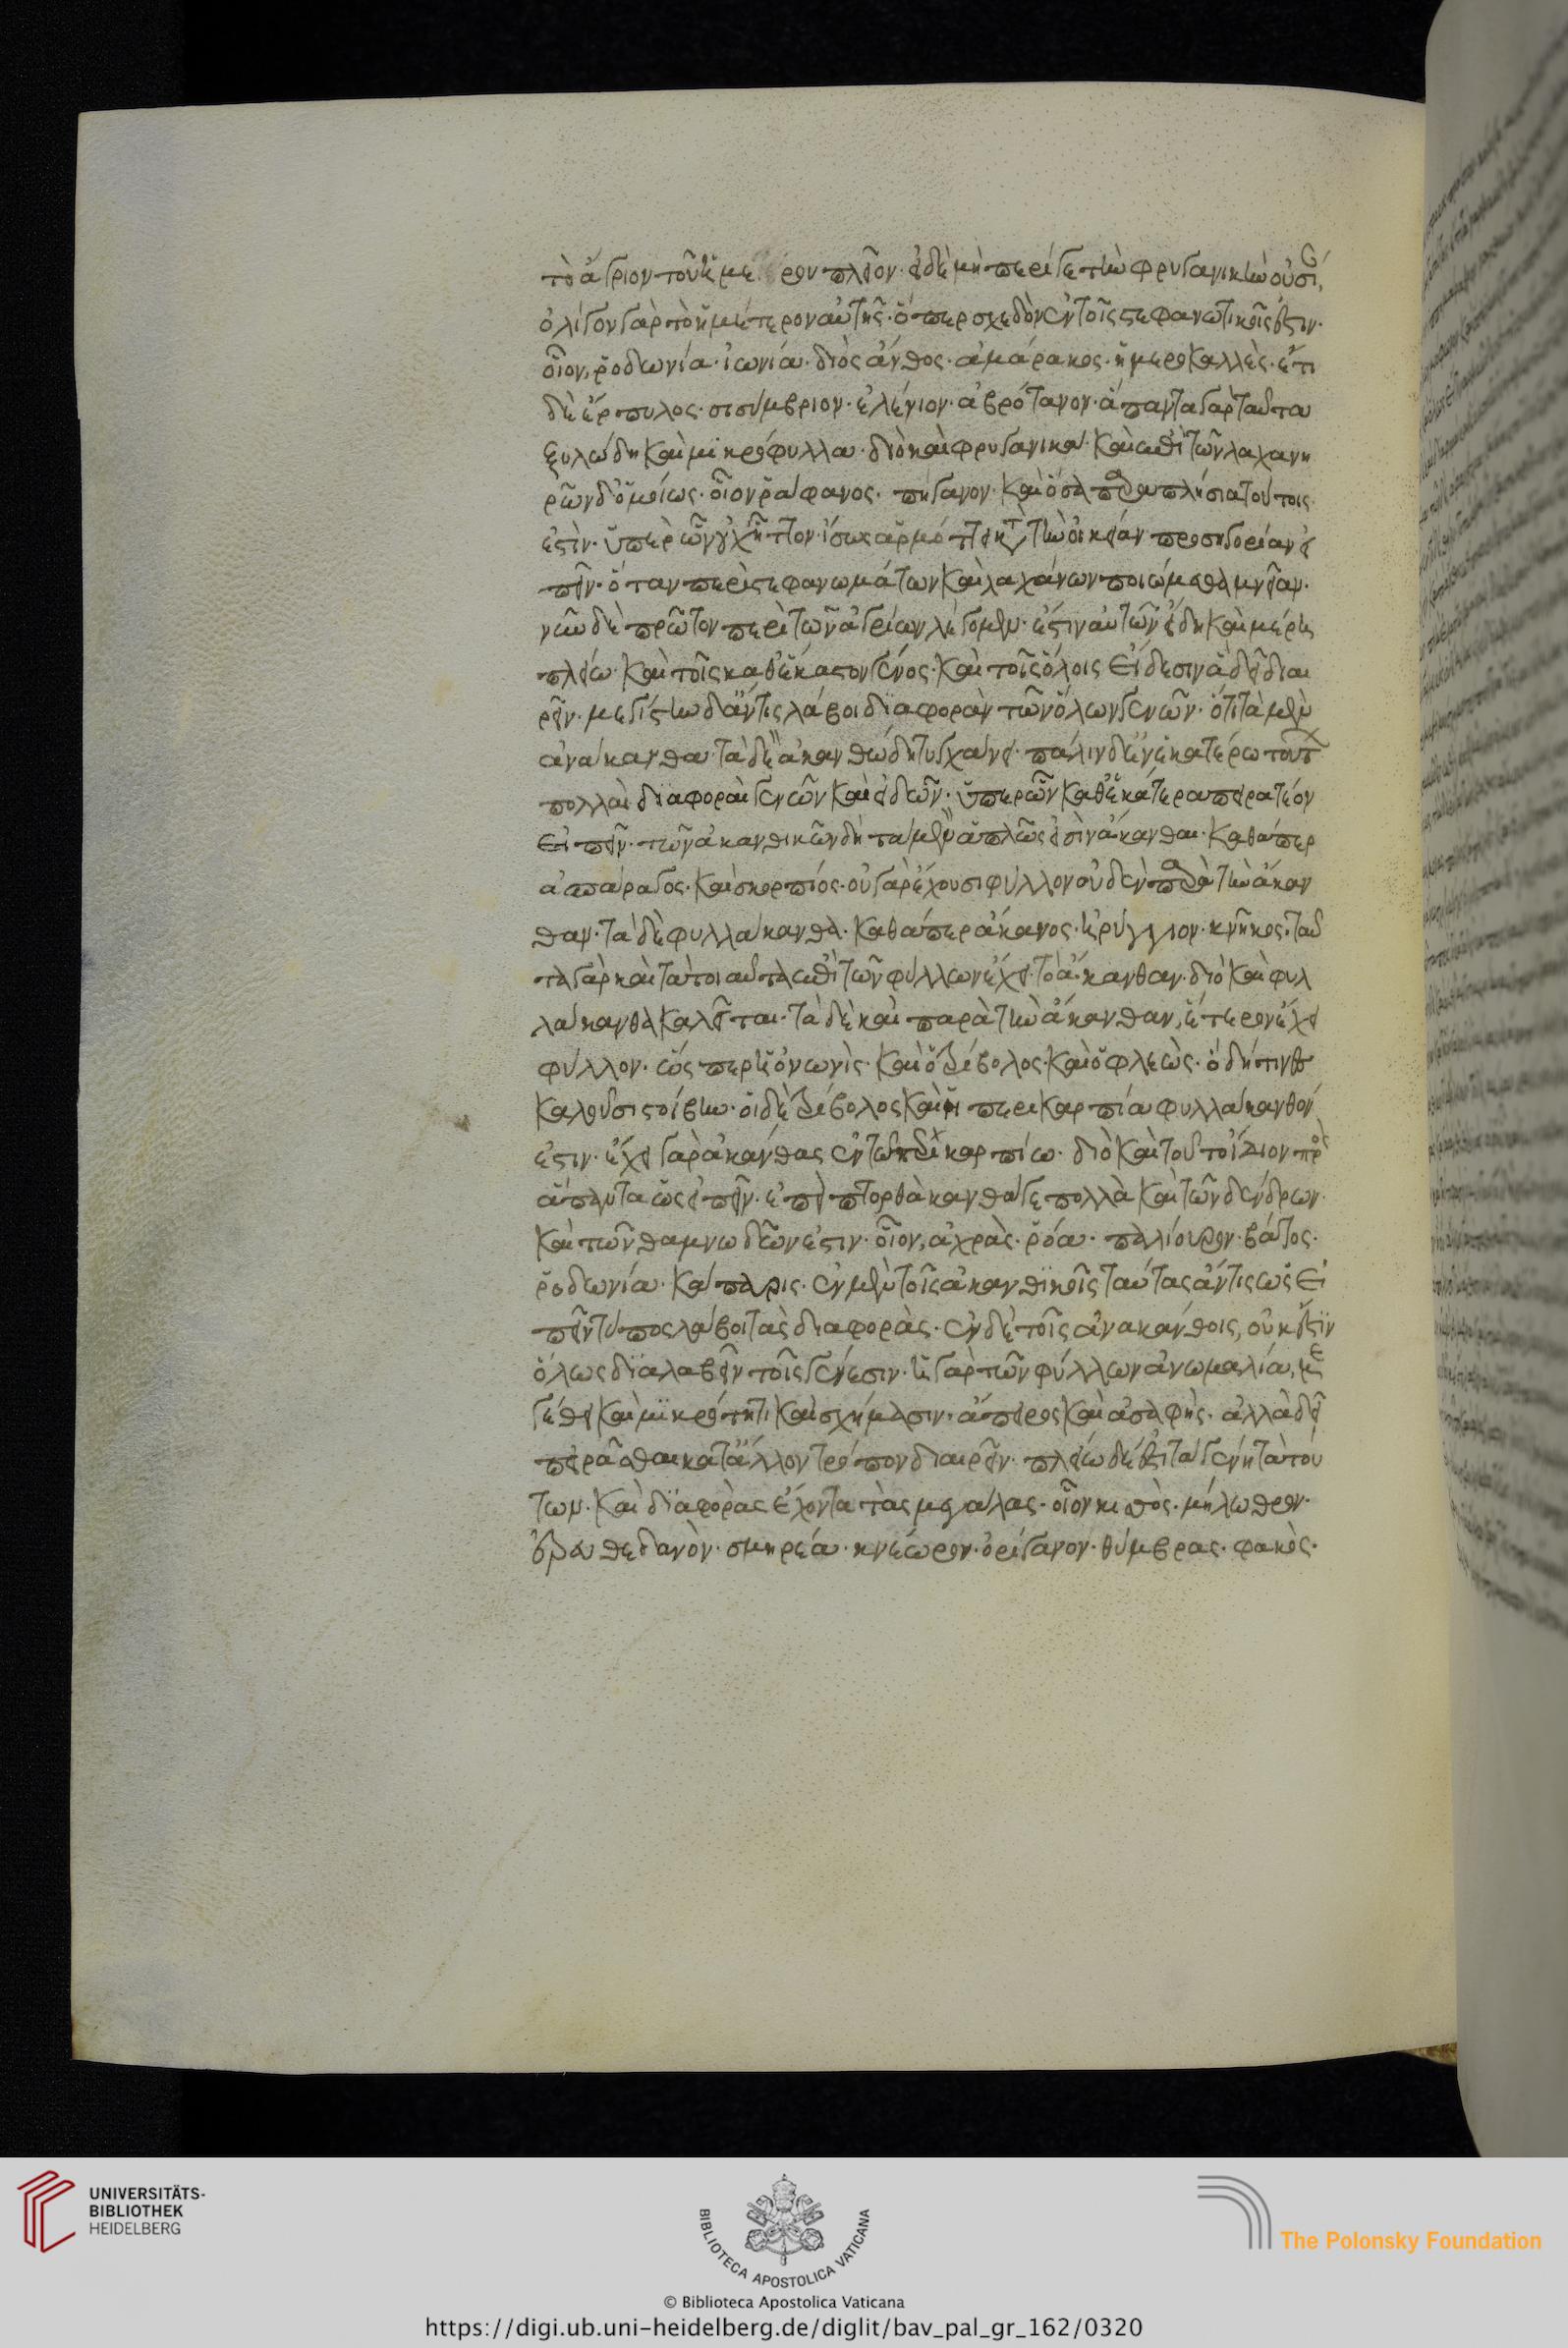 τὸ ἄγριον τοῦ ἡμέρου πλεῖον· εἰ δὲ μὴ περί γε τὴν φρυγανικὴν οὐσί
ὀλίγον γὰρ τὸ ἡμέτερον αὐτῆς· ὅπερ σχεδὸν ἐν τοῖς στεφανωτικοῖς ἐστιν·
οἷον, ῥοδωνία· ἰωνία· διὸς ἄνθος· ἀμάρακος· ἡμεροκαλλὲς· ἔτι
δὲ ἕρπυλος· σισύμβριον· ἑλένιον· ἀβρότανον· ἅπαντα γὰρ ταῦτα
ξυλώδη καὶ μικρόφυλλα· διὸ καὶ φρυγανικά· καὶ ἐπὶ τῶν λαχανη
ρῶν δ' ὁμοίως· οἷον ῥάφανος· πήγανον· καὶ ὅσα παραπλήσια τούτοις
ἐστὶν· ὑπὲρ ὧν οὐχ ἧττον ἴσως ἁρμόττει κτ τὴν οἰκείαν προσηγορίαν εἰ
πεῖν· ὅταν περὶ στεφανωμάτων καὶ λαχάνων ποιώμεθα μνείαν·
νῦν δὲ πρῶτον περὶ τῶν ἀγρίων λέγομεν· ἔστιν αὐτῶν εἴδη καὶ μέρις
πλείω· καὶ τοῖς καθ' ἕκαστον γένος· καὶ τοῖς ὅλοις εἴδεσιν ἃ δεῖ διαι
ρεῖν· μεγίστην δ' ἄν τις λάβοι διαφορὰν τῶν ὅλων γενῶν· ὅτι τὰ μὲν
ἀνάκανθα· τὰ δὲ ἀκανθώδη τυγχάνει· πάλιν δὲ ἐν ἑκατέρω τούτ
πολλαὶ διαφοραὶ γενῶν καὶ εἰδῶν· ὑπὲρ ὧν καθ' ἑκάτερα πειρατέον
εἰπεῖν· τῶν ἀκανθικῶν δὴ τὰ μὲν ἁπλῶς εἰσὶν ἄκανθαι· καθάπερ
ἀσπάραγος· καὶ σκορπίος· οὐ γὰρ ἔχουσι φύλλον οὐδὲν παρὰ τὴν ἄκαν
θαν· τὰ δὲ φυλλάκανθα· καθάπερ ἄκανος· ἠρύγγιον· κνῆκος· ταῦ
τα γὰρ καὶ τὰ τοιαῦτα ἐπὶ τῶν φύλλων ἔχει· τὸ ἄκανθαν· διὸ καὶ φυλ
λάκανθα καλεῖται· τὰ δὲ καὶ παρὰ τὴν ἄκανθαν, ἕτερον ἔχει
φύλλον· ὥσπερ ἡ ὀνωνὶς· καὶ ὁ τρίβολος· καὶ ὁ φλεὼς· ὃ δή τινες
καλοῦσι στοίβην· ὁ δὲ τρίβολος καὶ περικαρπιάφυλλάκανθόν
ἐστιν· ἔχει γὰρ ἀκάνθας ἐν τῶ περικαρπίω· διὸ καὶ τοῦτο ἴδιον πρὸς
ἅπαντα ὡς εἰπεῖν· ἐπεὶ πτορθάκανθά γε πολλὰ καὶ τῶν δένδρων
καὶ τῶν θαμνωδῶν ἐστιν· οἷον, ἀχρὰς· ῥόα· παλίουρον· βάτος·
ῥοδωνία· κάππαρις· ἐν μὲν τοῖς ἀκανθικοῖς ταύτας ἄν τις ὡς εἰ
πεῖν τύπος λάβοι τὰς διαφοράς· ἐν δὲ τοῖς ἀνακάνθοις, οὐκ ἔστιν
ὅλως διαλαβεῖν τοῖς γένεσιν· ἡ γὰρ τῶν φύλλων ἀνωμαλία, με
γέθει καὶ μικρότητι καὶ σχήμασιν, ἄπειρος καὶ ἀσαφής· ἀλλὰ δεῖ
πειρᾶσθαι κατ' ἄλλον τρόπον διαιρεῖν· πλείω δέ ἐστι τὰ γένη τὰ τού
των· καὶ διαφορὰς ἔχοντα τὰς μεγάλας· οἷον κισθὸς· μήλωθρον·
ἐρευθεδανὸν· σπειρέα· κνέωρον· ὀρίγανον· θύμβρας· φακὸς·
UNIVERSITÄTS-
BIBLIOTHEK
HEIDELBERG
BIBLIOTECA APOSTOLICA VATICANA
The Polonsky Foundation
© Biblioteca Apostolica Vaticana
https://digi.ub.uni-heidelberg.de/diglit/bav_pal_gr_162/0320